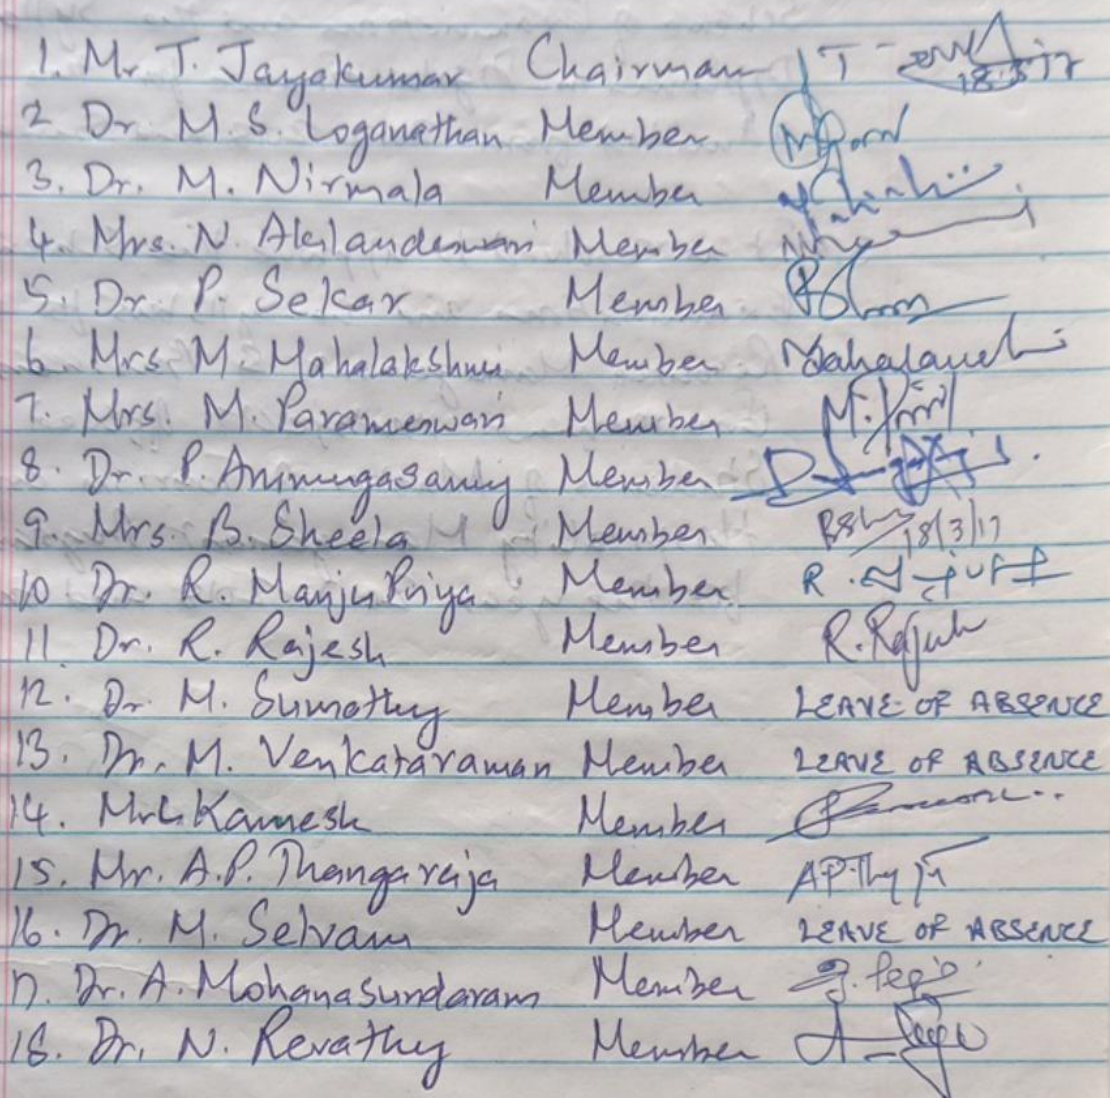 1. Mr T. Jayakumar Chairman T 18.3.17
2 Dr M. S. Loganathan Member
3. Dr. M. Nirmala Member
4. Mrs. N. Akilandeswari Member
5. Dr. P. Sekar Member
6 Mrs. M. Mahalakshmi Member
7. Mrs. M. Parameswari Member
8. Dr. P. Arumugasamy Member
9. Mrs. B. Sheela Member 18/3/17
10 Dr. R. Manju Priya Member R.
11. Dr. R. Rajesh Member R. Rajesh
12. Dr. M. Sumathy Member LEAVE OF ABSENCE
13. Dr. M. Venkataraman Member LEAVE OF ABSENCE
14. Mr. L. Kamesh Member
15. Mr. A.P. Thangaraja Member
16. Dr. M. Selvam Member LEAVE OF ABSENCE
17. Dr. A. Mohanasundaram Member
18. Dr. N. Revathy Member